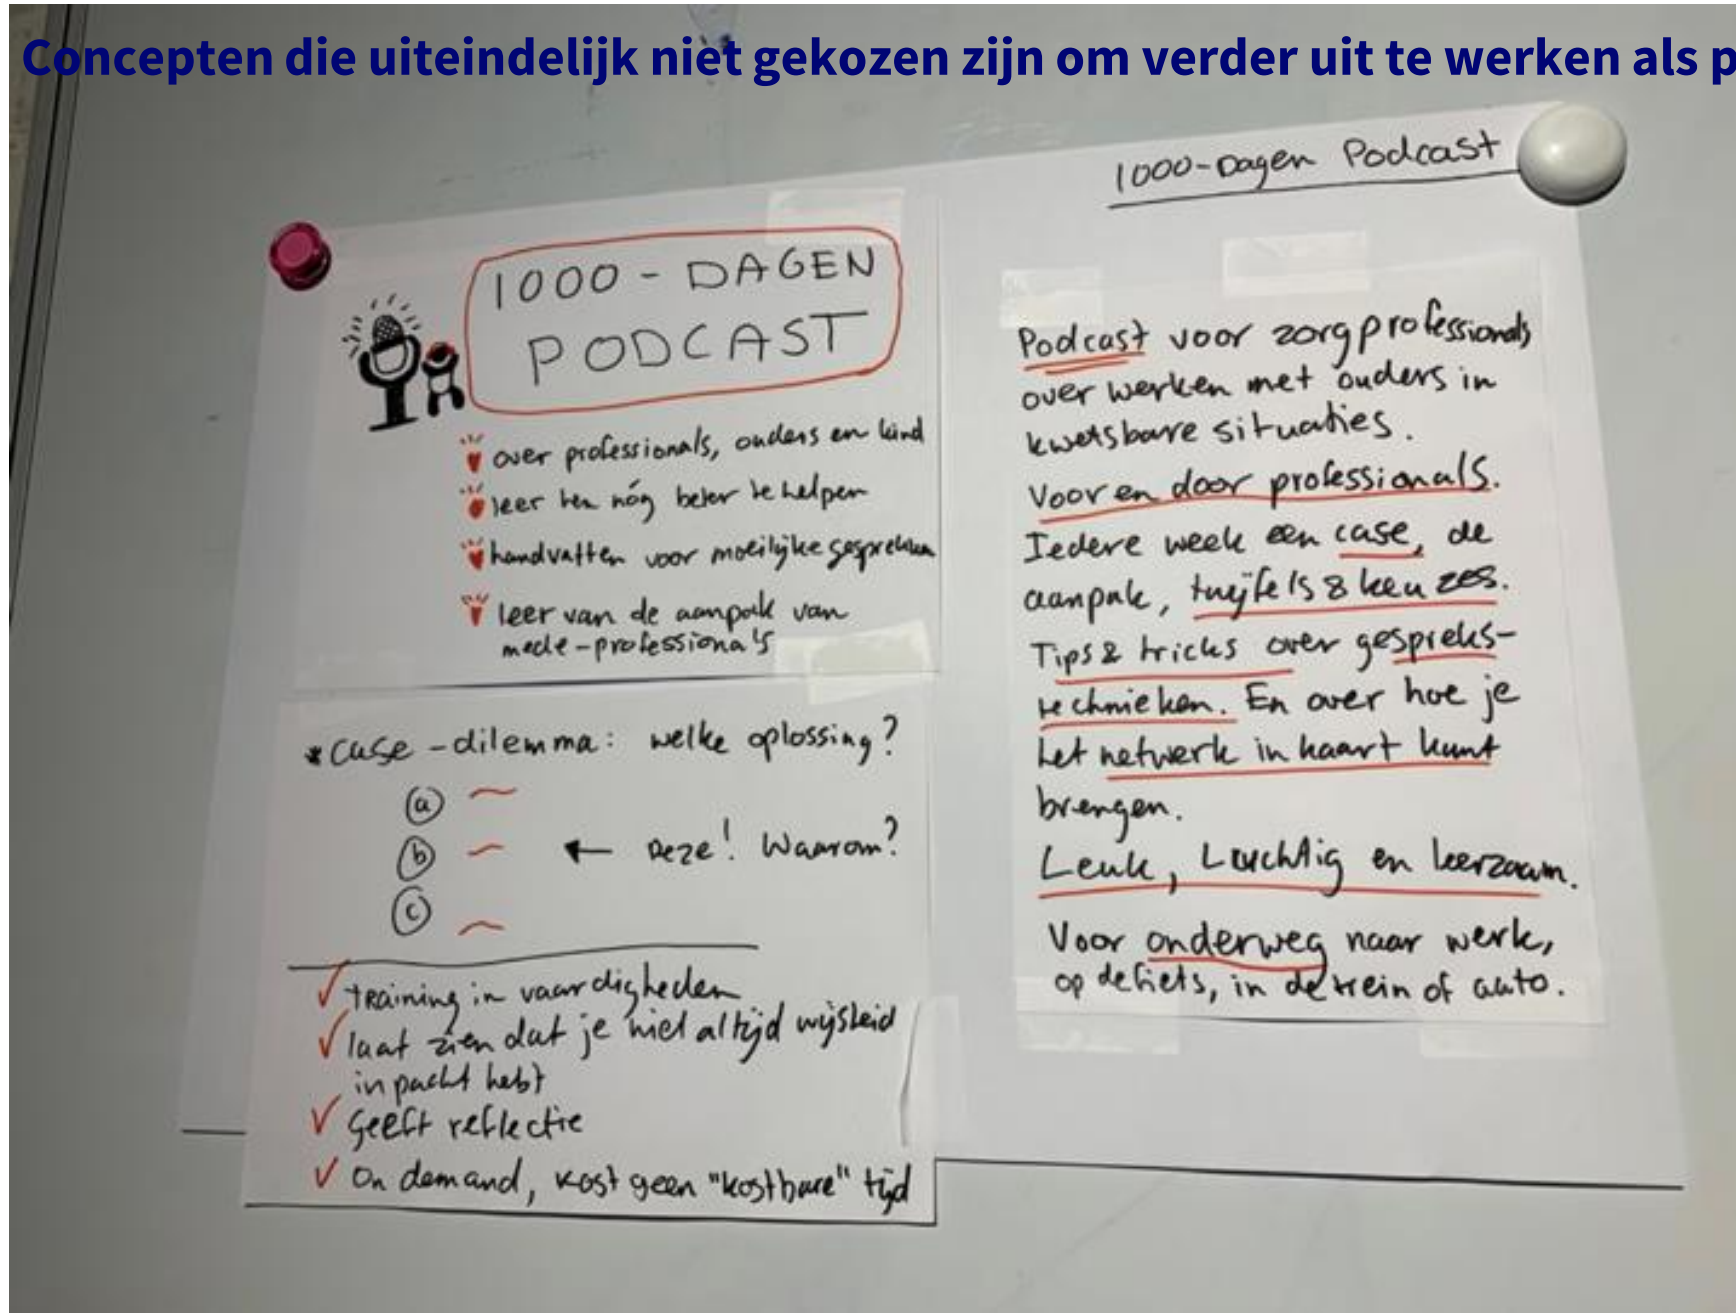 Concepten die uiteindelijk niet gekozen zijn om verder uit te werken als p
1000-Dagen Podcast
1000 - DAGEN
PODCAST
over professionals, ouders en kind
leer hen nóg beter te helpen
handvatten voor moeilijke gesprekken
leer van de aanpak van
mede-professionals
* case - dilemma: welke oplossing?
a
b ← Deze! Waarom?
c
training in vaardigheden
laat zien dat je niet altijd wijsheid
in pacht hebt
Geeft reflectie
On demand, kost geen "kostbare" tijd
Podcast voor zorgprofessionals
over werken met ouders in
kwetsbare situaties.
Voor en door professionals.
Iedere week een case, de
aanpak, twijfels & keuzes.
Tips & tricks over gespreks-
technieken. En over hoe je
het netwerk in kaart kunt
brengen.
Leuk, Luchtig en leerzaam.
Voor onderweg naar werk,
op de fiets, in de trein of auto.